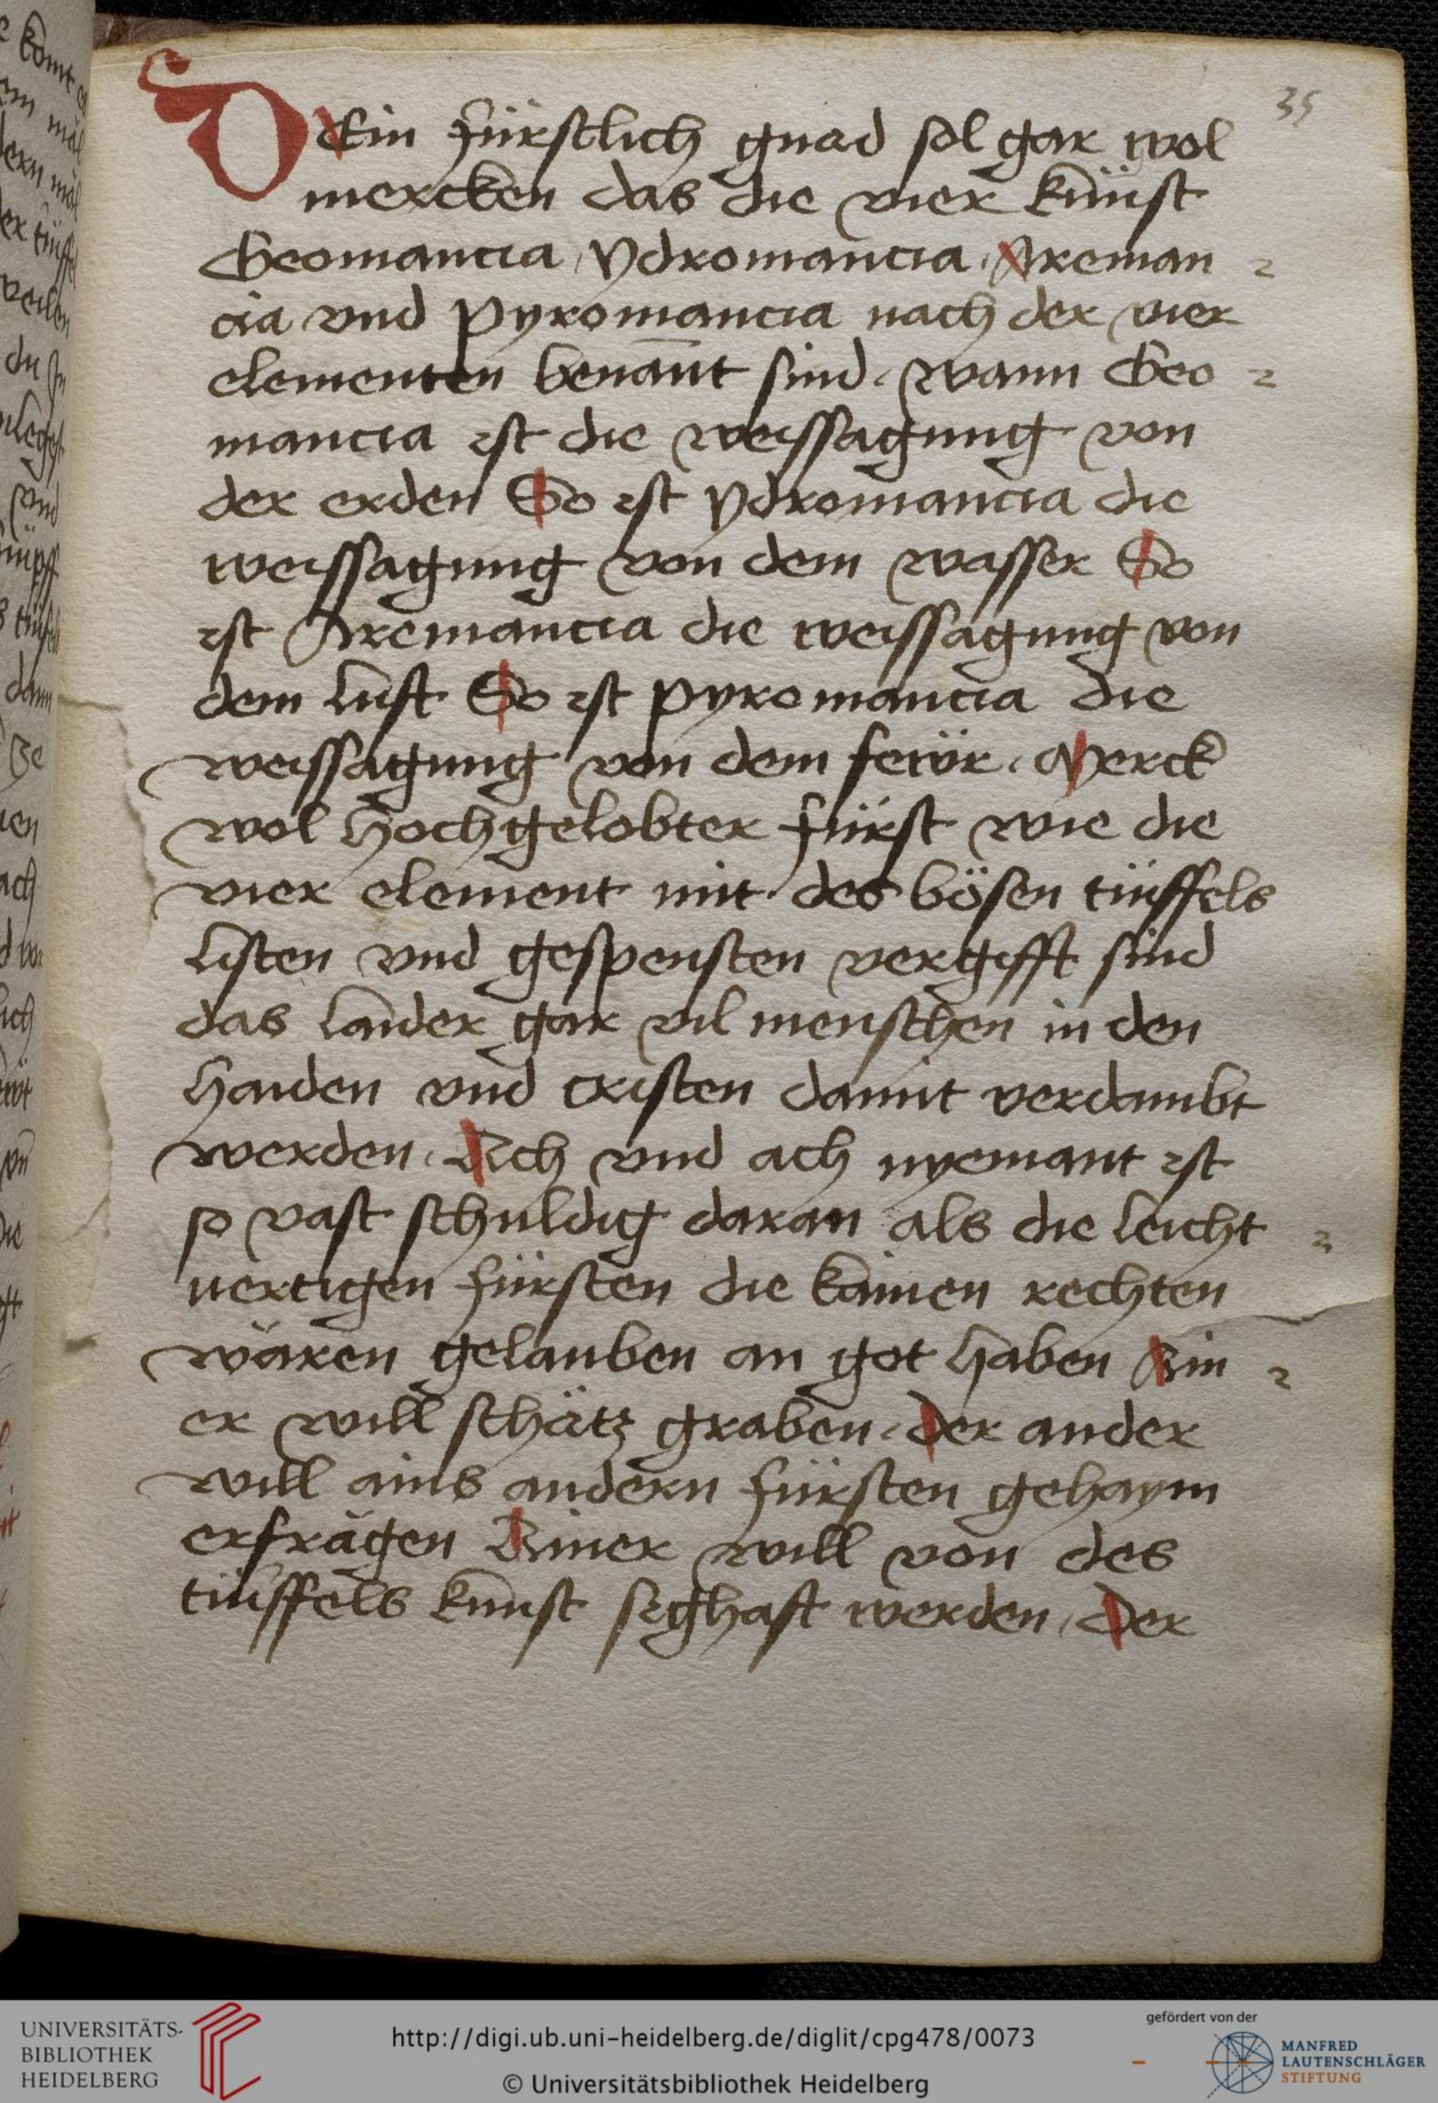 35
DEin fürstlich gnad sol gar wol
mercken das die vier künst
Geomancia, Ydromancia, Areman
cia vnd Pyromancia nach der vier
elementen benant sind, wann Geo
mancia ist die weissagung von
der erden So ist ydromancia die
weissagung von dem wasser So
ist Aremancia die weissagung von
dem luft So ist pyromancia die
weissagung von dem fewr, Merck
wol hochgelobter fürst wie die
vier element mit des bösen tüffels
listen vnd gespensten vergifft sind
das laider gar vil menschen in den
haiden vnd cristen damit verdambt
werden, Ach vnd ach nyemant ist
so vast schuldig daran als die leicht
vertigen fürsten die kainen rechten
wären gelauben an got haben Ain
er will schätz graben, der ander
will ains andern fürsten gehaym
erfrägen Ainer will von des
tüffels kunst sighaft werden, der
UNIVERSITÄTS-
BIBLIOTHEK
HEIDELBERG
http://digi.ub.uni-heidelberg.de/diglit/cpg478/0073
© Universitätsbibliothek Heidelberg
gefördert von der
MANFRED
LAUTENSCHLÄGER
STIFTUNG